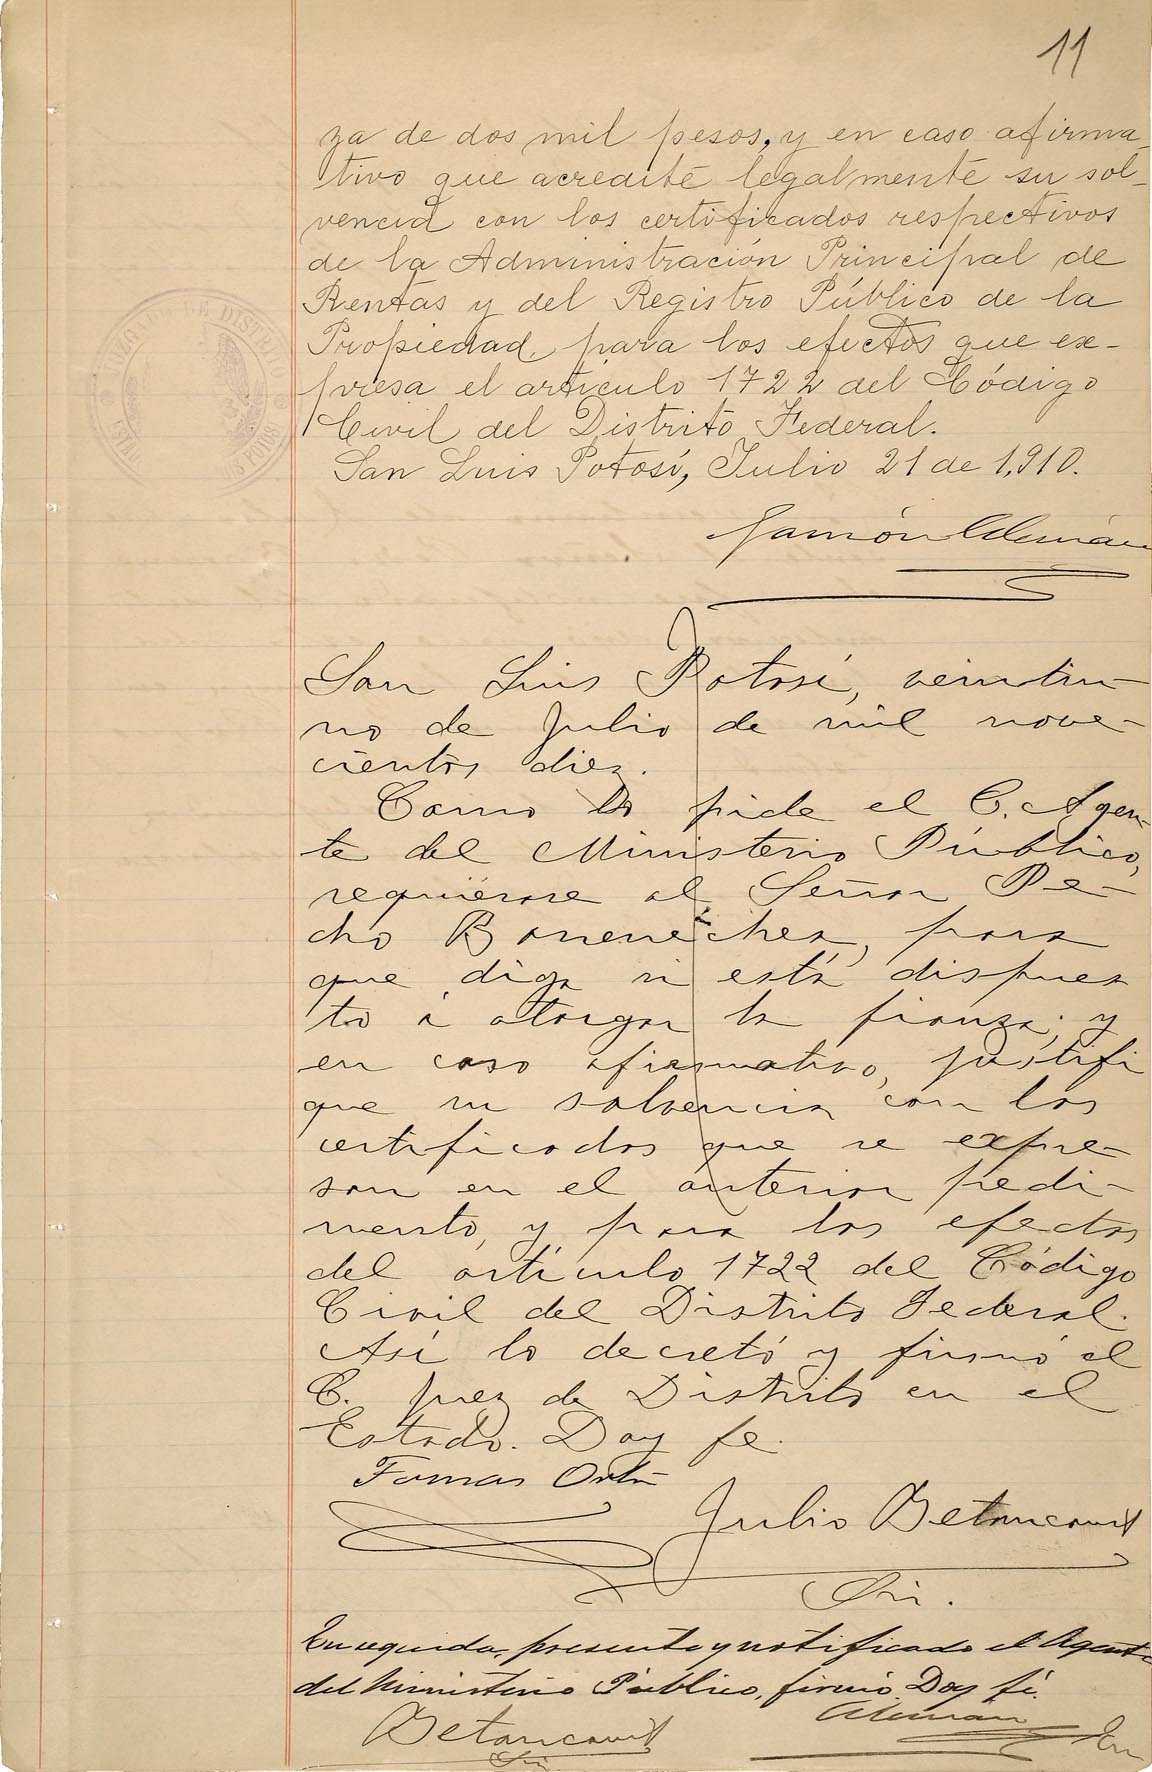 11
za de dos mil pesos, y en caso afirma_
tivo que acredite legalmente su sol_
vencia con los certificados respectivos
de la Administración Principal de
Rentas y del Registro Público de la
Propiedad, para los efectos que ex-
presa el artículo 1722 del Código
Civil del Distrito Federal.
San Luis Potosí, Julio 21 de 1,910.
JUZGADO DE DISTRI
Ramón Alemán
San Luis Potosí, veintiu-
no de Julio de mil nove-
cientos diez.
Como lo pide el C. Agen-
te del Ministerio Público,
requiérase al Señor Pe-
cho para
que diga si está dispues
to á otorgar la fianza; y
en caso afirmativo, justifi
que su solvencia con los
certificados que se expre-
san en el anterior pedi-
mento, y para los efectos
del artículo 1722 del Código
Civil del Distrito Federal.
Así lo decretó y firmó el
C. Juez de Distrito en el
Estado. Doy fe.
Tomas Ortiz
Julio Betancourt
Srio.
En seguida, presente y notificado el Agente
del Ministerio Público, firmó. Doy fé.
Alemán
Betancourt
Srio
En